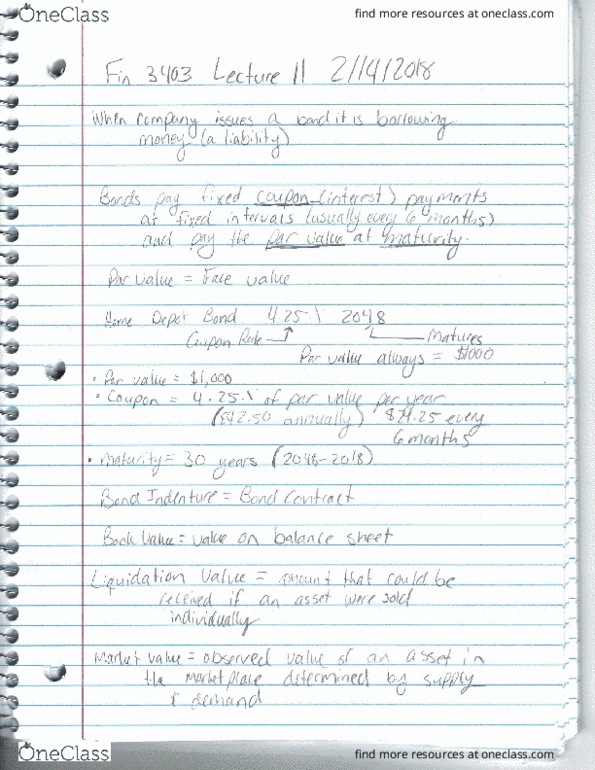 OneClass
find more resources at oneclass.com
Fin 3403 Lecture 11 2/14/2018
When company issues a bond it is borrowing
money (a liability)
Bonds pay fixed coupon (interest) payments
at fixed intervals (usually every 6 months)
and pay the par value at maturity.
Par value = Face value
Home Depot Bond 4.25% 2048
Coupon Rate Matures
Par value always = $1000
• Par value = $1,000
• Coupon = 4.25% of par value per year
($42.50 annually) $21.25 every
6 months
• Maturity = 30 years (2048-2018)
Bond Indenture = Bond Contract
Book Value = value on balance sheet
Liquidation Value = amount that could be
received if an asset were sold
individually
Market value = observed value of an asset in
the marketplace determined by supply
& demand
OneClass
find more resources at oneclass.com